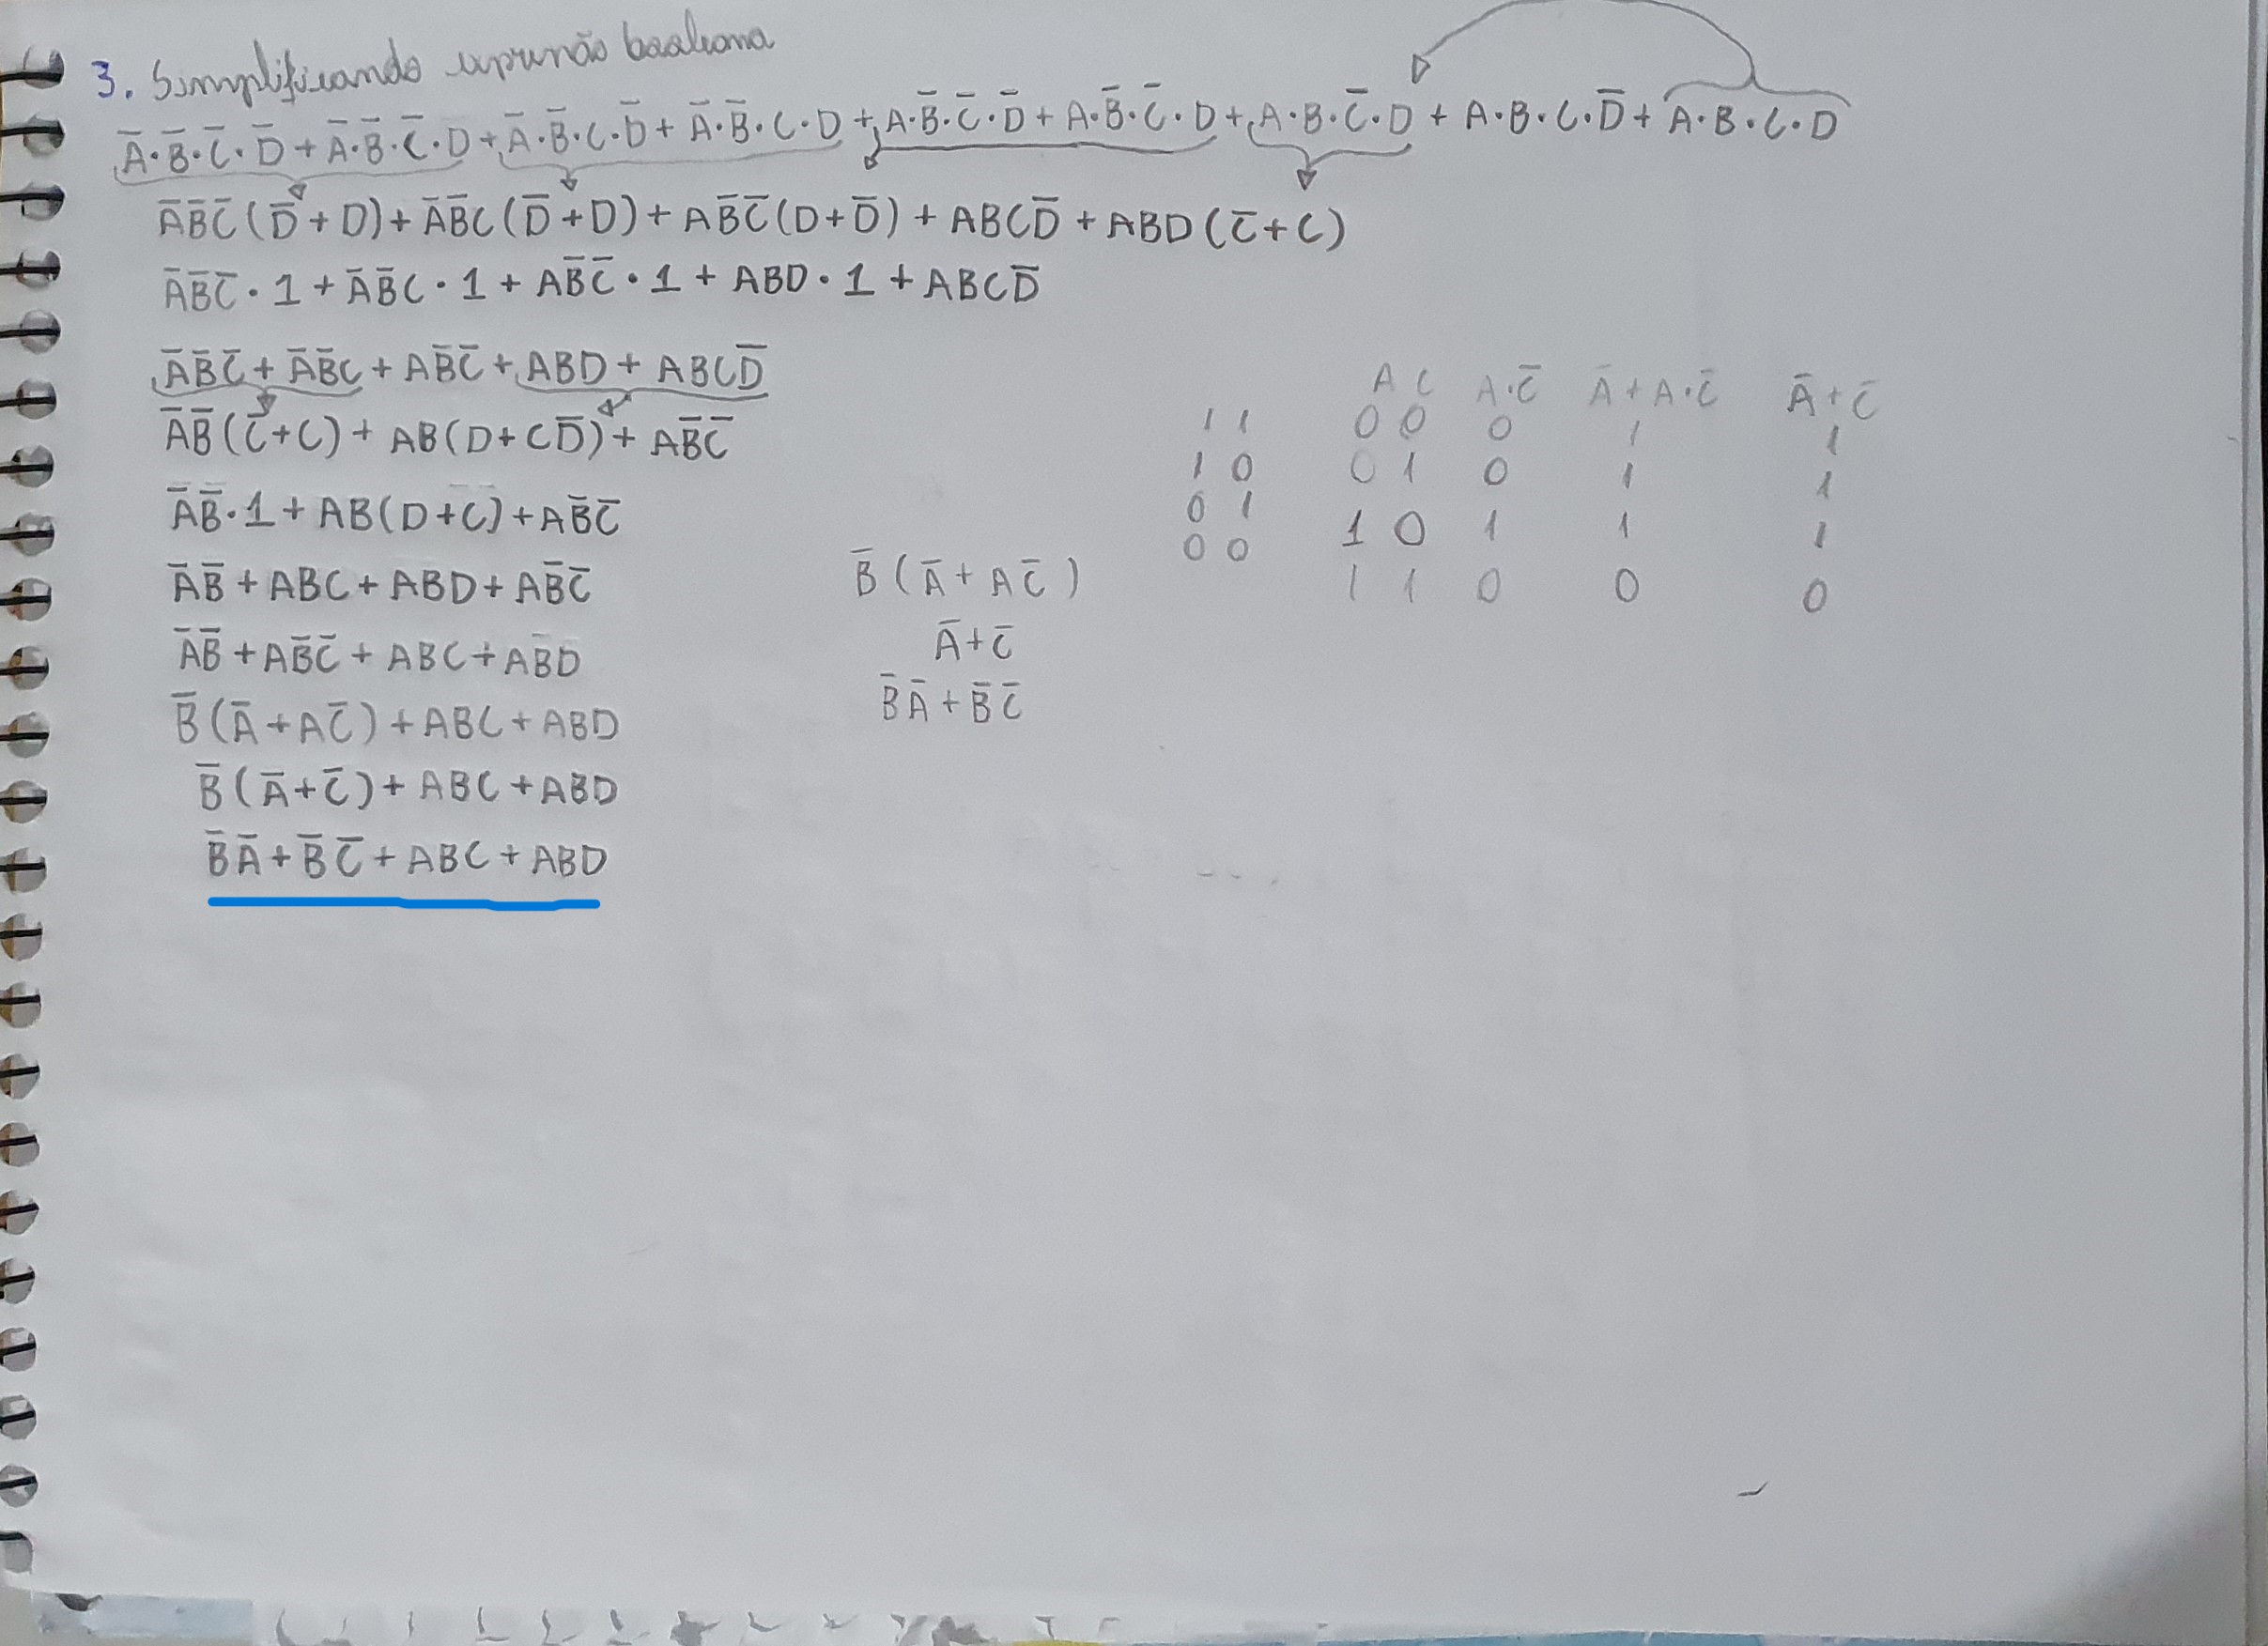 3. Simplificando expressão booleana
A̅·B̅·C̅·D̅ + A̅·B̅·C̅·D + A̅·B̅·C·D̅ + A̅·B̅·C·D + A·B̅·C̅·D̅ + A·B̅·C̅·D + A·B·C̅·D + A·B·C·D̅ + A·B·C·D
A̅B̅C̅(D̅+D) + A̅B̅C(D̅+D) + AB̅C̅(D+D̅) + ABCD̅ + ABD(C̅+C)
A̅B̅C̅·1 + A̅B̅C·1 + AB̅C̅·1 + ABD·1 + ABCD̅
A̅B̅C̅ + A̅B̅C + AB̅C̅ + ABD + ABCD̅
A̅B̅(C̅+C) + AB(D+CD̅) + AB̅C̅
A̅B̅·1 + AB(D+C) + AB̅C̅
A̅B̅ + ABC + ABD + AB̅C̅
A̅B̅ + AB̅C̅ + ABC + ABD
B̅(A̅+AC̅) + ABC + ABD
B̅(A̅+C̅) + ABC + ABD
B̅A̅ + B̅C̅ + ABC + ABD
B̅(A̅+AC̅)
A̅+C̅
B̅A̅+B̅C̅
1 1
1 0
0 1
0 0
A C A·C̅ A̅+A·C̅ A̅+C̅
0 0 0 1 1
0 1 0 1 1
1 0 1 1 1
1 1 0 0 0